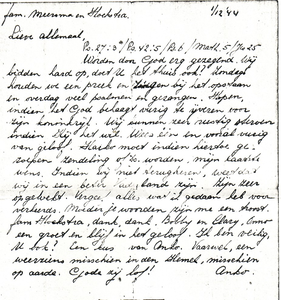 fam. Meersma en Hoekstra. 1/12 '44
Lieve allemaal,
Ps. 27:
Worden door God erg gezegend. Wij
bidden hard op, doet U het thuis ook? Zondags
houden we een preek en zingen bij het opstaan
en overdag veel psalmen en gezangen. Hopen,
indien het God behaagt vurig te ijveren voor
zijn koninkrijk. Wij kunnen zeer rustig sterven
indien Hij het wil. Wees één en vooral vurig
van geloof. Haske moet indien hiertoe ge-
roepen zendeling of ds. worden, mijn laatste
wens. Indien wij niet terugkeren, weet dat
wij in een beter land zijn. Zijn zeer
opgewekt. alles wat ik gedaan het voor
verkeerds. Moeder je woorden zijn me een troost.
Fam Hoekstra, dank, dank. en
een groet en blijf in het geloof. Ik ben veilig,
U ook? Een kus van Anko. Vaarwel, een
weerziens misschien in den Hemel, misschien
op aarde. Gode zij lof! Anko.